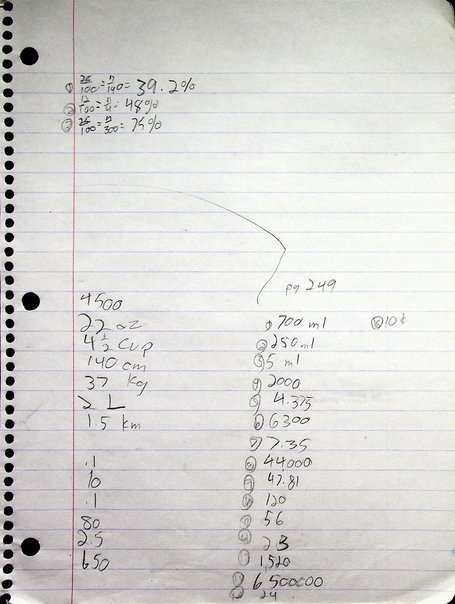 ① 28/100 = n/140 = 39.2%
② 12/100 = n/4 = 48%
③ 25/100 = n/300 = 75%
pg 249
4500
22 oz
4 1/2 cup
140 cm
37 kg
2 L
1.5 km
.1
10
.1
80
2.5
650
700 ml
② 250 ml
③ 5 ml
④ 2000
⑤ 4.375
⑥ 6300
⑦ 7.35
⑧ 44000
47.81
120
56
23
1,520
6500000
24
10¢